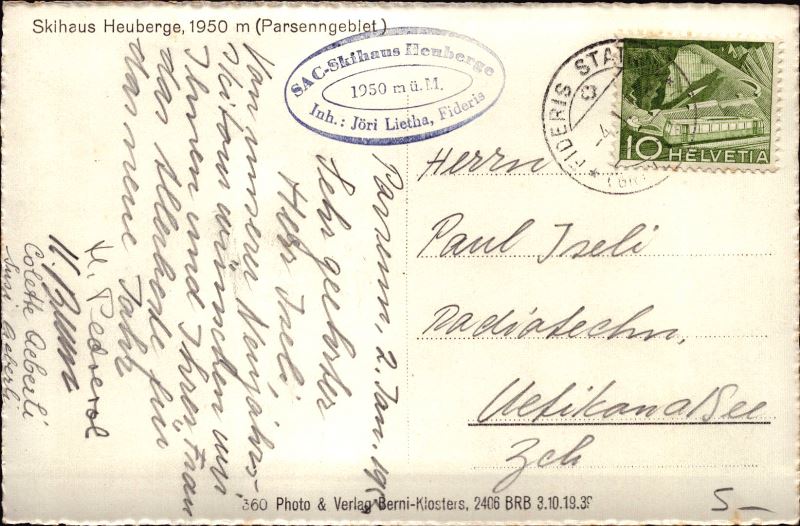 Skihaus Heuberge, 1950 m (Parsenngebiet)
SAC-Skihaus Heuberge
1950 m ü. M.
Inh.: Jöri Lietha, Fideris
FIDERIS STA
10 HELVETIA
Parsenn, 2. Jan. 19
Sehr geehrter
Herr Iseli
Von unserer Neujahrs-
wünschen wir
Ihnen und Ihrer Frau
das Allerbeste für
das neue Jahr
H. Pedretol
Colette Aeberli
Susi Aeberli
Herrn
Paul Iseli
Radiotechn,
Uetikon a/See
Zch
360 Photo & Verlag Berni-Klosters, 2406 BRB 3.10.1939
5-